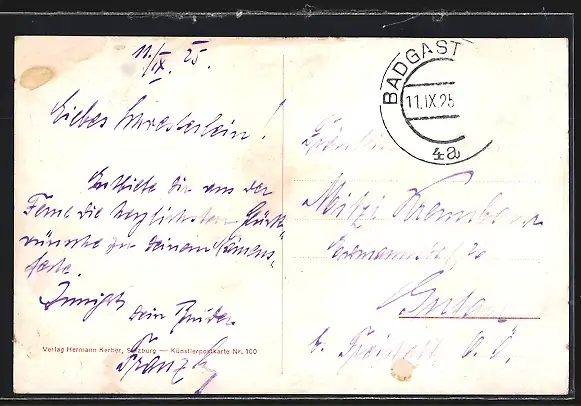 11./IX. 25.
Liebes Schwesterlein!
Entbiete Dir aus der
Ferne die herzlichsten Glück-
wünsche zu Deinem Namens-
feste.
Innigst
Dein Bruder
Franz
Verlag Hermann Kerber, Salzburg — Künstlerpostkarte Nr. 100
BADGAST
11.IX.25
4a
Fräulein
Mitzi
b. Freistadt, O. Ö.